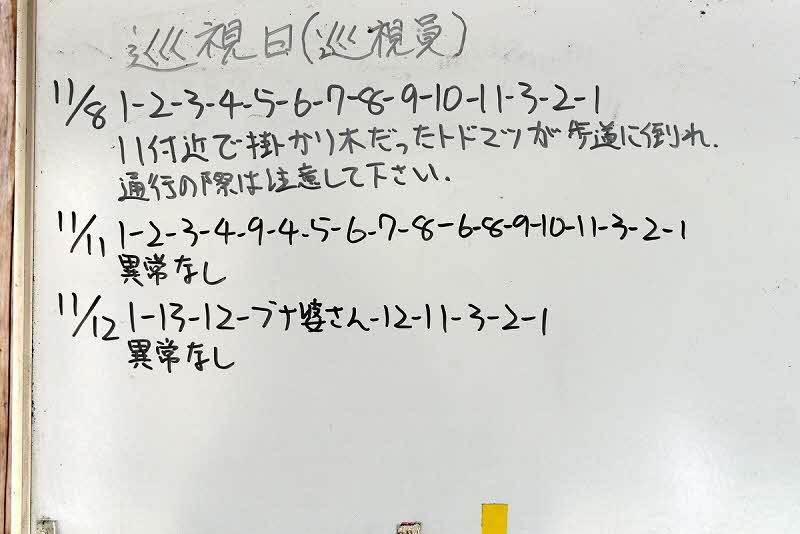 巡視日(巡視員)
11/8 1-2-3-4-5-6-7-8-9-10-11-3-2-1
11付近で掛かり木だったトドマツが歩道に倒れ.
通行の際は注意して下さい.
11/11 1-2-3-4-9-4-5-6-7-8-6-8-9-10-11-3-2-1
異常なし
11/12 1-13-12-ブナ婆さん-12-11-3-2-1
異常なし